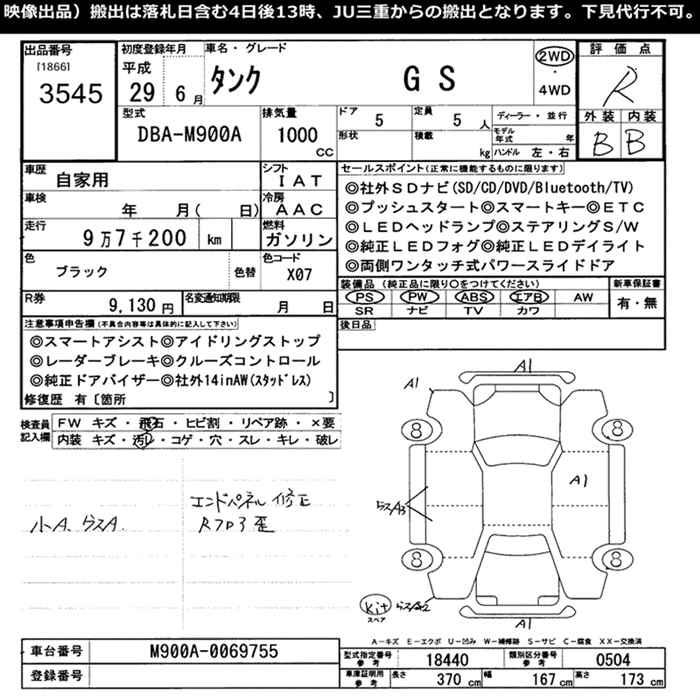 映像出品）搬出は落札日含む4日後13時、JU三重からの搬出となります。下見代行不可。
出品番号
[1866]
3545
初度登録年月
平成
29 6 月
車名・グレード
タンク GS
2WD
・
4WD
評価点
R
外装 内装
B B
型式
DBA-M900A
排気量
1000
CC
ドア
5
定員
5 人
形状
積載
kg
ディーラー・並行
モデル年式 年
ハンドル 左・右
車歴
自家用
シフト
IAT
車検
年 月( 日)
冷房
AAC
走行
9万7千200 km
燃料
ガソリン
色
ブラック
色替
色コード
X07
R券
9,130 円
名変通知期限
月 日
セールスポイント(正常に機能するものに限ります)
◎社外SDナビ(SD/CD/DVD/Bluetooth/TV)
◎プッシュスタート◎スマートキー◎ETC
◎LEDヘッドランプ◎ステアリングS/W
◎純正LEDフォグ◎純正LEDデイライト
◎両側ワンタッチ式パワースライドドア
装備品(純正品に限り○をつけてください)
PS PW ABS エアB AW
SR ナビ TV カワ
新車保証書
有・無
後日品
注意事項申告欄(不具合内容等は具体的に記入して下さい)
◎スマートアシスト◎アイドリングストップ
◎レーダーブレーキ◎クルーズコントロール
◎純正ドアバイザー◎社外14inAW(スタッドレス)
修復歴 有〔箇所 〕
検査員記入欄
FW キズ・飛石・ヒビ割・リペア跡・×要
内装 キズ・汚レ・コゲ・穴・スレ・キレ・破レ
小A、ウスA
エンドパネル修正
Rフロア歪
A1
A1
8
8
ウスA3
A1
8
8
Kit
スペア
ウスA2
A1
A-キズ E-エクボ U-凹み W-補修跡 S-サビ C-腐食 XX-交換済
車台番号
M900A-0069755
登録番号
型式指定番号
参考
18440
類別区分番号
参考
0504
車庫証明用
参考
長さ
370 cm
幅
167 cm
高さ
173 cm